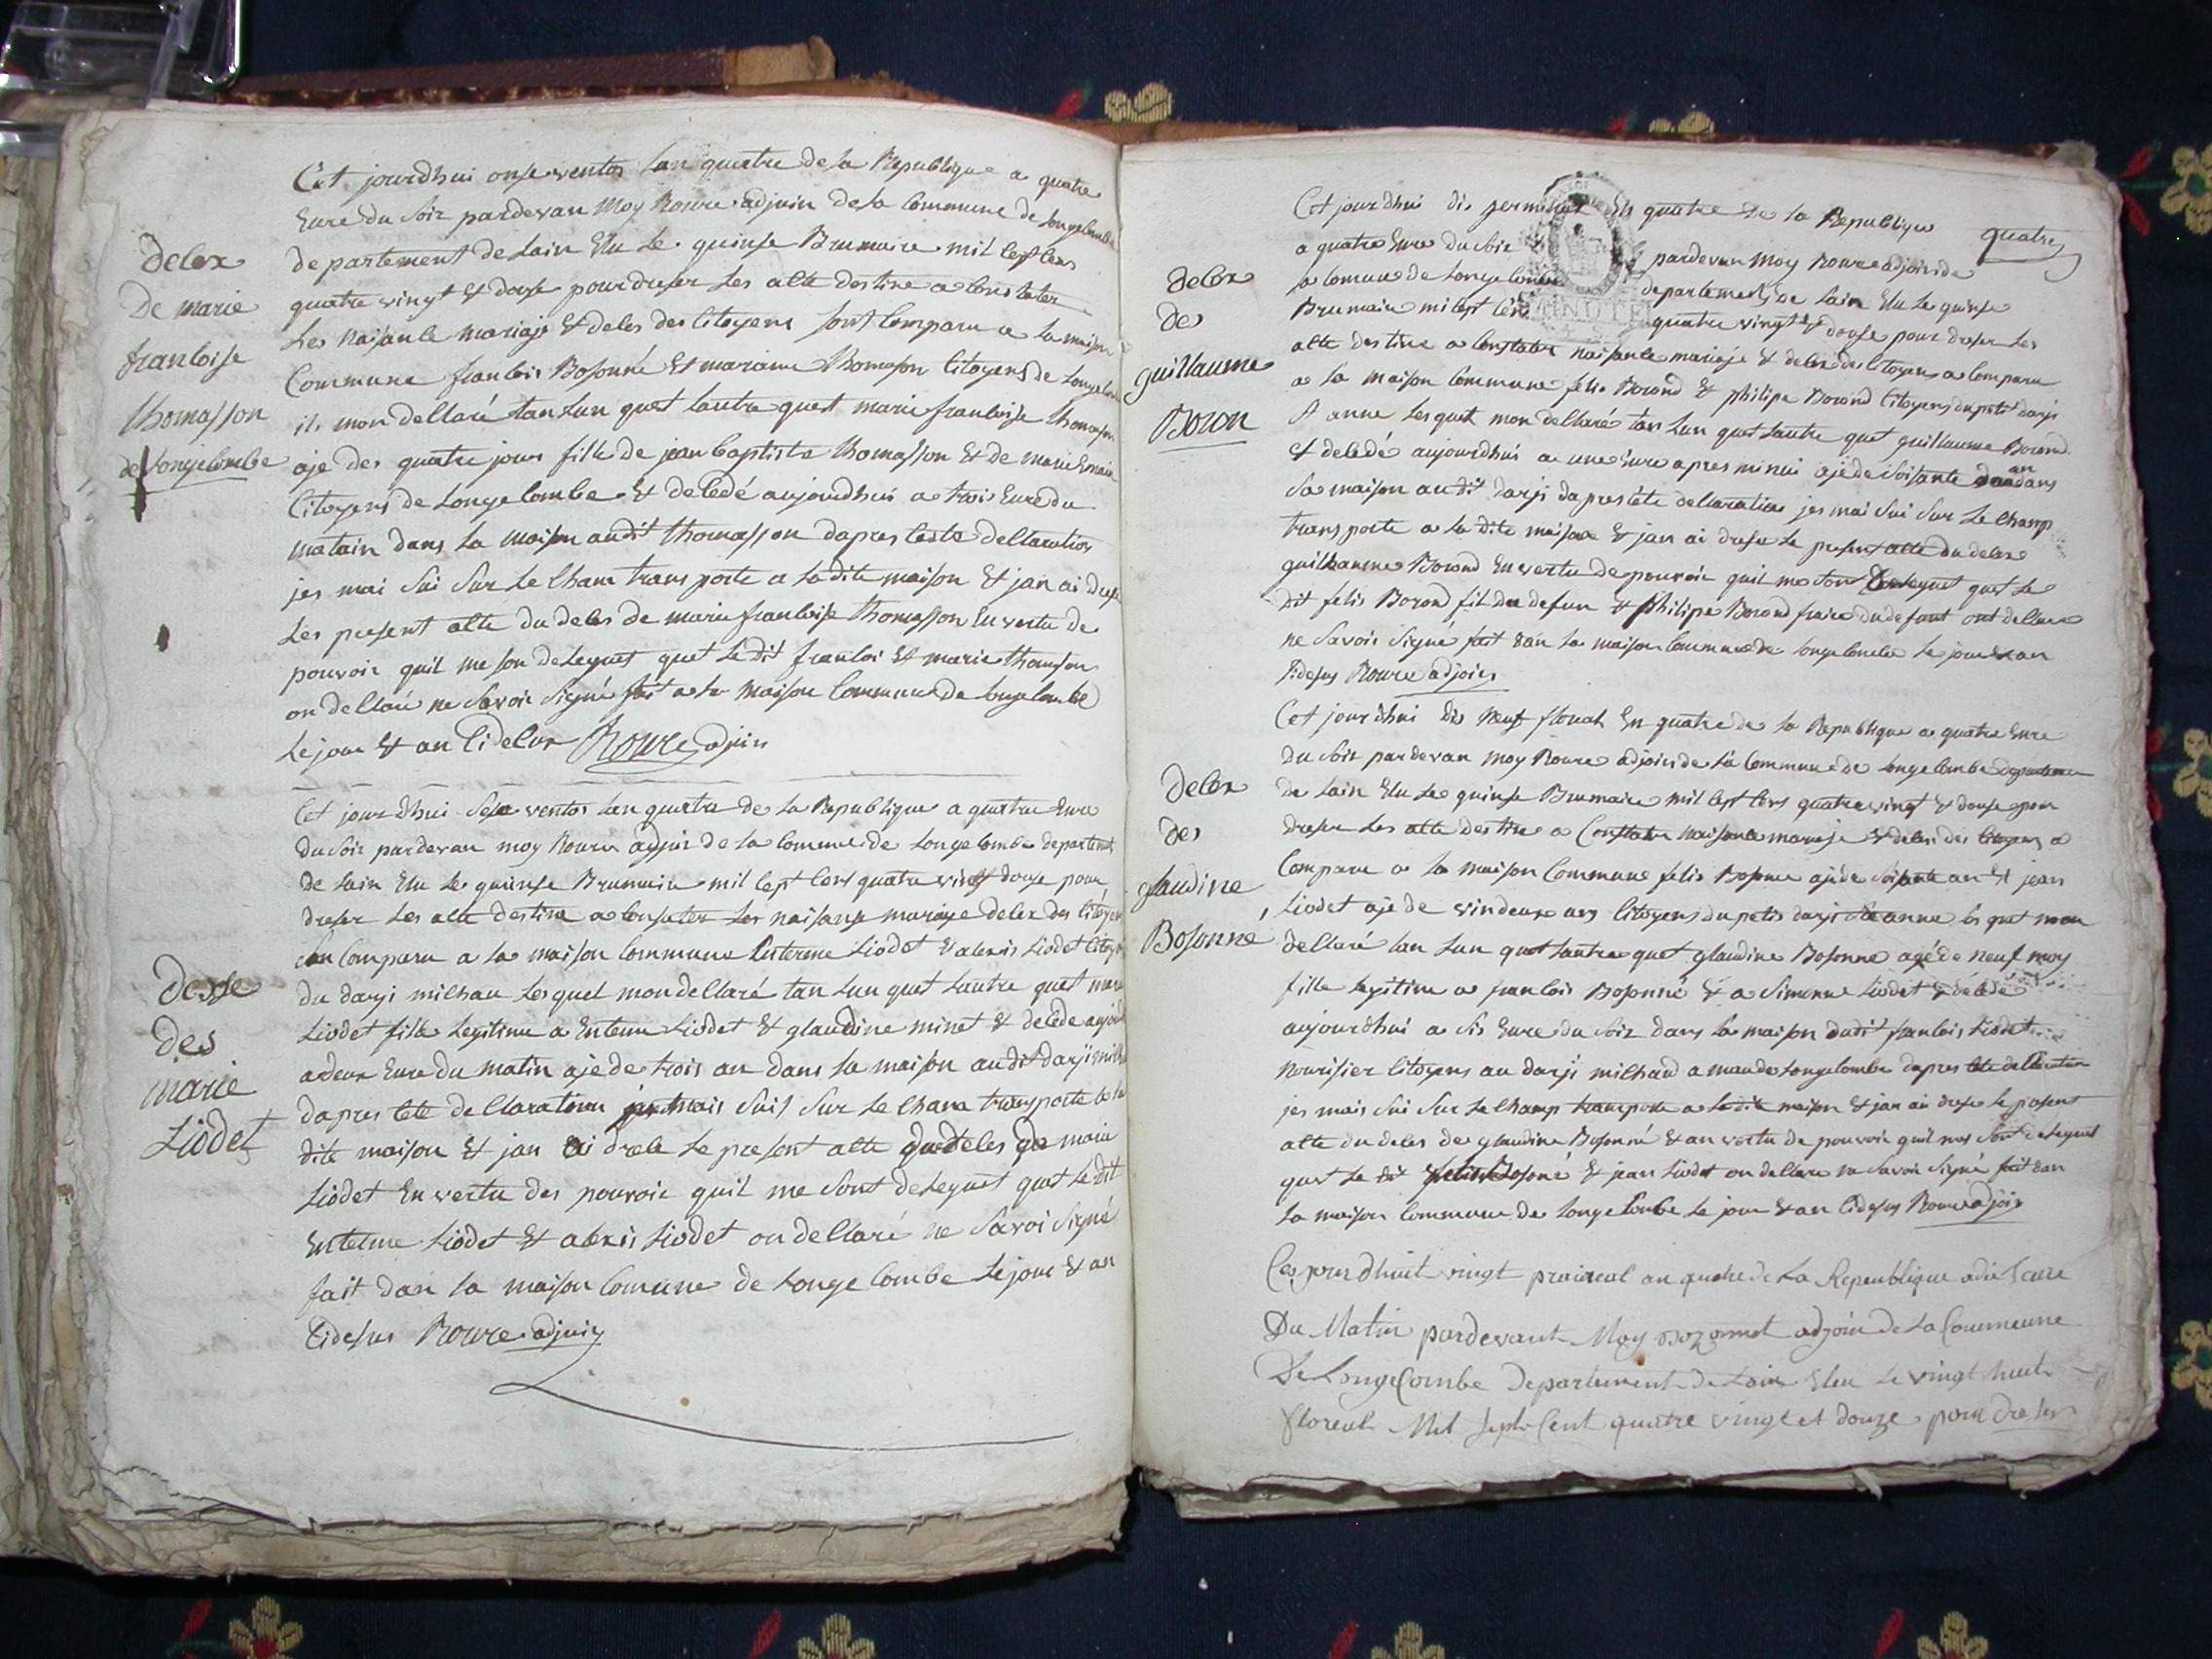 Cet jourdhui onse ventos lan quatre de la Republique a quatre
Eure du soir pardevan Moy Roure adjoin de la Commune de Longelombe
departement de lain Elu le quinse Brumaire mil sept cens
quatre vingt & douse pour dreser les alte destine a constater
Les naisanle mariaje & deles des Citoyens sont comparu a la maison
Commune franlois Bosonné & mariane Thomason Citoyens de Longelombe
il mon dellaré tan lun quet lautre quet marie franloise thomason
aje des quatre jour fille de jean baptiste thomasson & de marie
Citoyens de Longe lombe & deledé aujourdhui a trois Eure du
matain dans la maison audit thomasson dapres leste dellaration
jes mai sui sur le Cham transporte a la dite maison & jan ai drese
Les present alte du deles de marie franloise thomasson En vertu de
pouvoir quil me son deleguet quet le dit franloi & marie thomason
on dellaré ne savoir signé fait a la Maison Commune de Longelombe
Le jour & an Lidelur Roure adjoin
delex
De marie
franloise
thomasson
de longelombe
Cet jourdhui sese ventos lan quatre de la Republique a quatre Eure
du soir pardevan moy Roure adjoin de la Commune de Longe lombe departement
de lain Elu le quinse Brumaire mil sept cens quatre vingt douse pour
dreser les alte destine a constater les naisanse mariaje deles des Citoyens
son comparu a la maison Commune Enterme Liodet & alexis Liodet Citoyen
du darji milhau lesquel mon dellaré tan lun quet lautre quet marie
Liodet fille legitime a Enterme Liodet & glaudine minet & deledé aujourdhui
a deux Eure du matin aje de trois an dans la maison audit darji milhau
dapres lete dellaration jes mais suis sur le Cham transporte a la
dite maison & jan ai dresé le present alte du deles de marie
Liodet En vertu des pouvoir quil me sont deleguet quet le dit
Enterme Liodet & alexis Liodet on dellaré ne savoi signé
fait dan la maison Comune de Longe Combe le jour & an
Lidesus Roure adjoin
des
marie
Liodet
quatre
Cet jourdhui dis germinal En quatre de la Republique
a quatre Eure du soir pardevan Moy Roure adjoin de
la Comune de Longe lombe departement de lain Elu le quinse
Brumaire mil sept cens quatre vingt & douse pour dreser les
alte destine a constater naisanle mariaje & deles des Citoyen a comparu
a la maison Commune felis Borond & philipe Borond Citoyens du petit darji
St anne lesquet mon dellaré tan lun quet lautre quet guillaume Borond
et deledé aujourdhui a une Eure apres minui ajé de soisante an dans
sa maison audit darji dapres lete dellaration jes mai sui sur le Champ
transporte a la dite maison & jan ai drese le present alte du deles
guilhaume Borond En vertu de pouvoir quil me son deleguet quet le
dit felis Borond fil du defun & philipe Borond fraire du defunt ont dellaré
ne savoir signé fait dan la maison Commune de Longe lombe le jour & an
Lidesus Roure adjoin
delex
des
guillaume
Boron
Cet jourdhui dis neuf floreal En quatre de la Republique a quatre Eure
du soir pardevan moy Roure adjoin de la Commune de Longe lombe departemen
de lain Elu le quinse Brumaire mil sept cens quatre vingt & douse pour
dreser les alte destine a Constater naisanle mariaje & deles des Citoyens a
Comparu a la maison Commune felis Bosonne ajé de soisante an & jean
Liodet aje de vindeux ans Citoyens du petis darji Ste anne lesquet mon
dellaré tan lun quet lautre quet glaudine Bosonne agé de neuf moy
fille legitime a franlois Bosonné & a Simonne Liodet & deledé
aujourdhui a sis Eure du soir dans la maison dudit franlois Liodet
nourisier Citoyens au darji milhaud a maude Longelombe dapres lete dellaration
jes mais sui sur le Champ transporte a la dite maison & jan ai drese le present
alte du deles de glaudine Bosonné & an vertu de pouvoir quil mes sont deleguet
quet le dit felis Bosoné & jean Liodet on dellare ne savoir signé fait dan
la maison Commune de Longe Combe le jour & an Lidesus Roure adjoin
delex
des
glaudine
Bosonne
Cejourdhuit vingt prairial an quatre de La Republique a dix heure
Du Matin pardevant Moy Bozonnet adjoin de La Commune
De LongeCombe Departement de Lain Eleu le vingt huit
floreal Mil Sept Cent quatre vingt et douze pour dreser